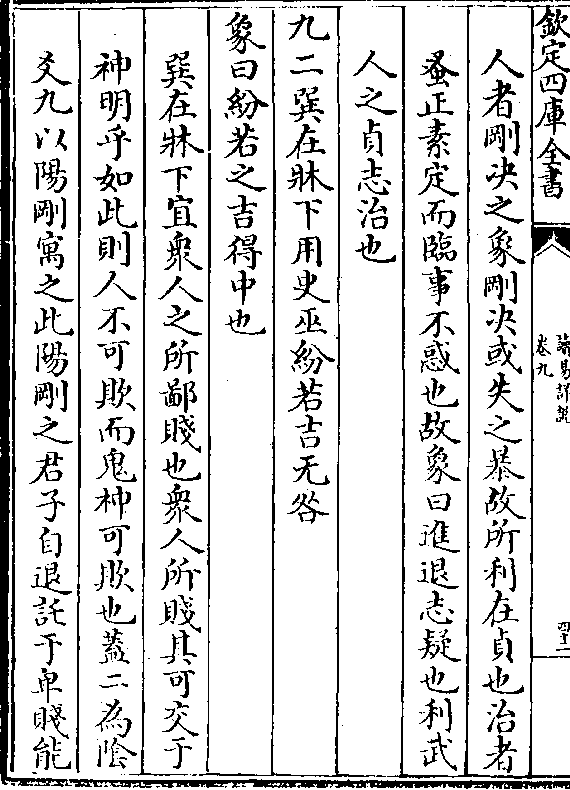 欽定四庫全書
讀易詳說
卷九
四十二
人者剛決之象剛決或失之暴故所利在貞也治者
蚤正素定而臨事不惑也故象曰進退志疑也利武
人之貞志治也
九二巽在牀下用史巫紛若吉无咎
象曰紛若之吉得中也
巽在牀下宜衆人之所鄙賤也衆人所賤其可交于
神明乎如此則人不可欺而鬼神可欺也蓋二為陰
爻九以陽剛寓之此陽剛之君子自退託于卑賤能